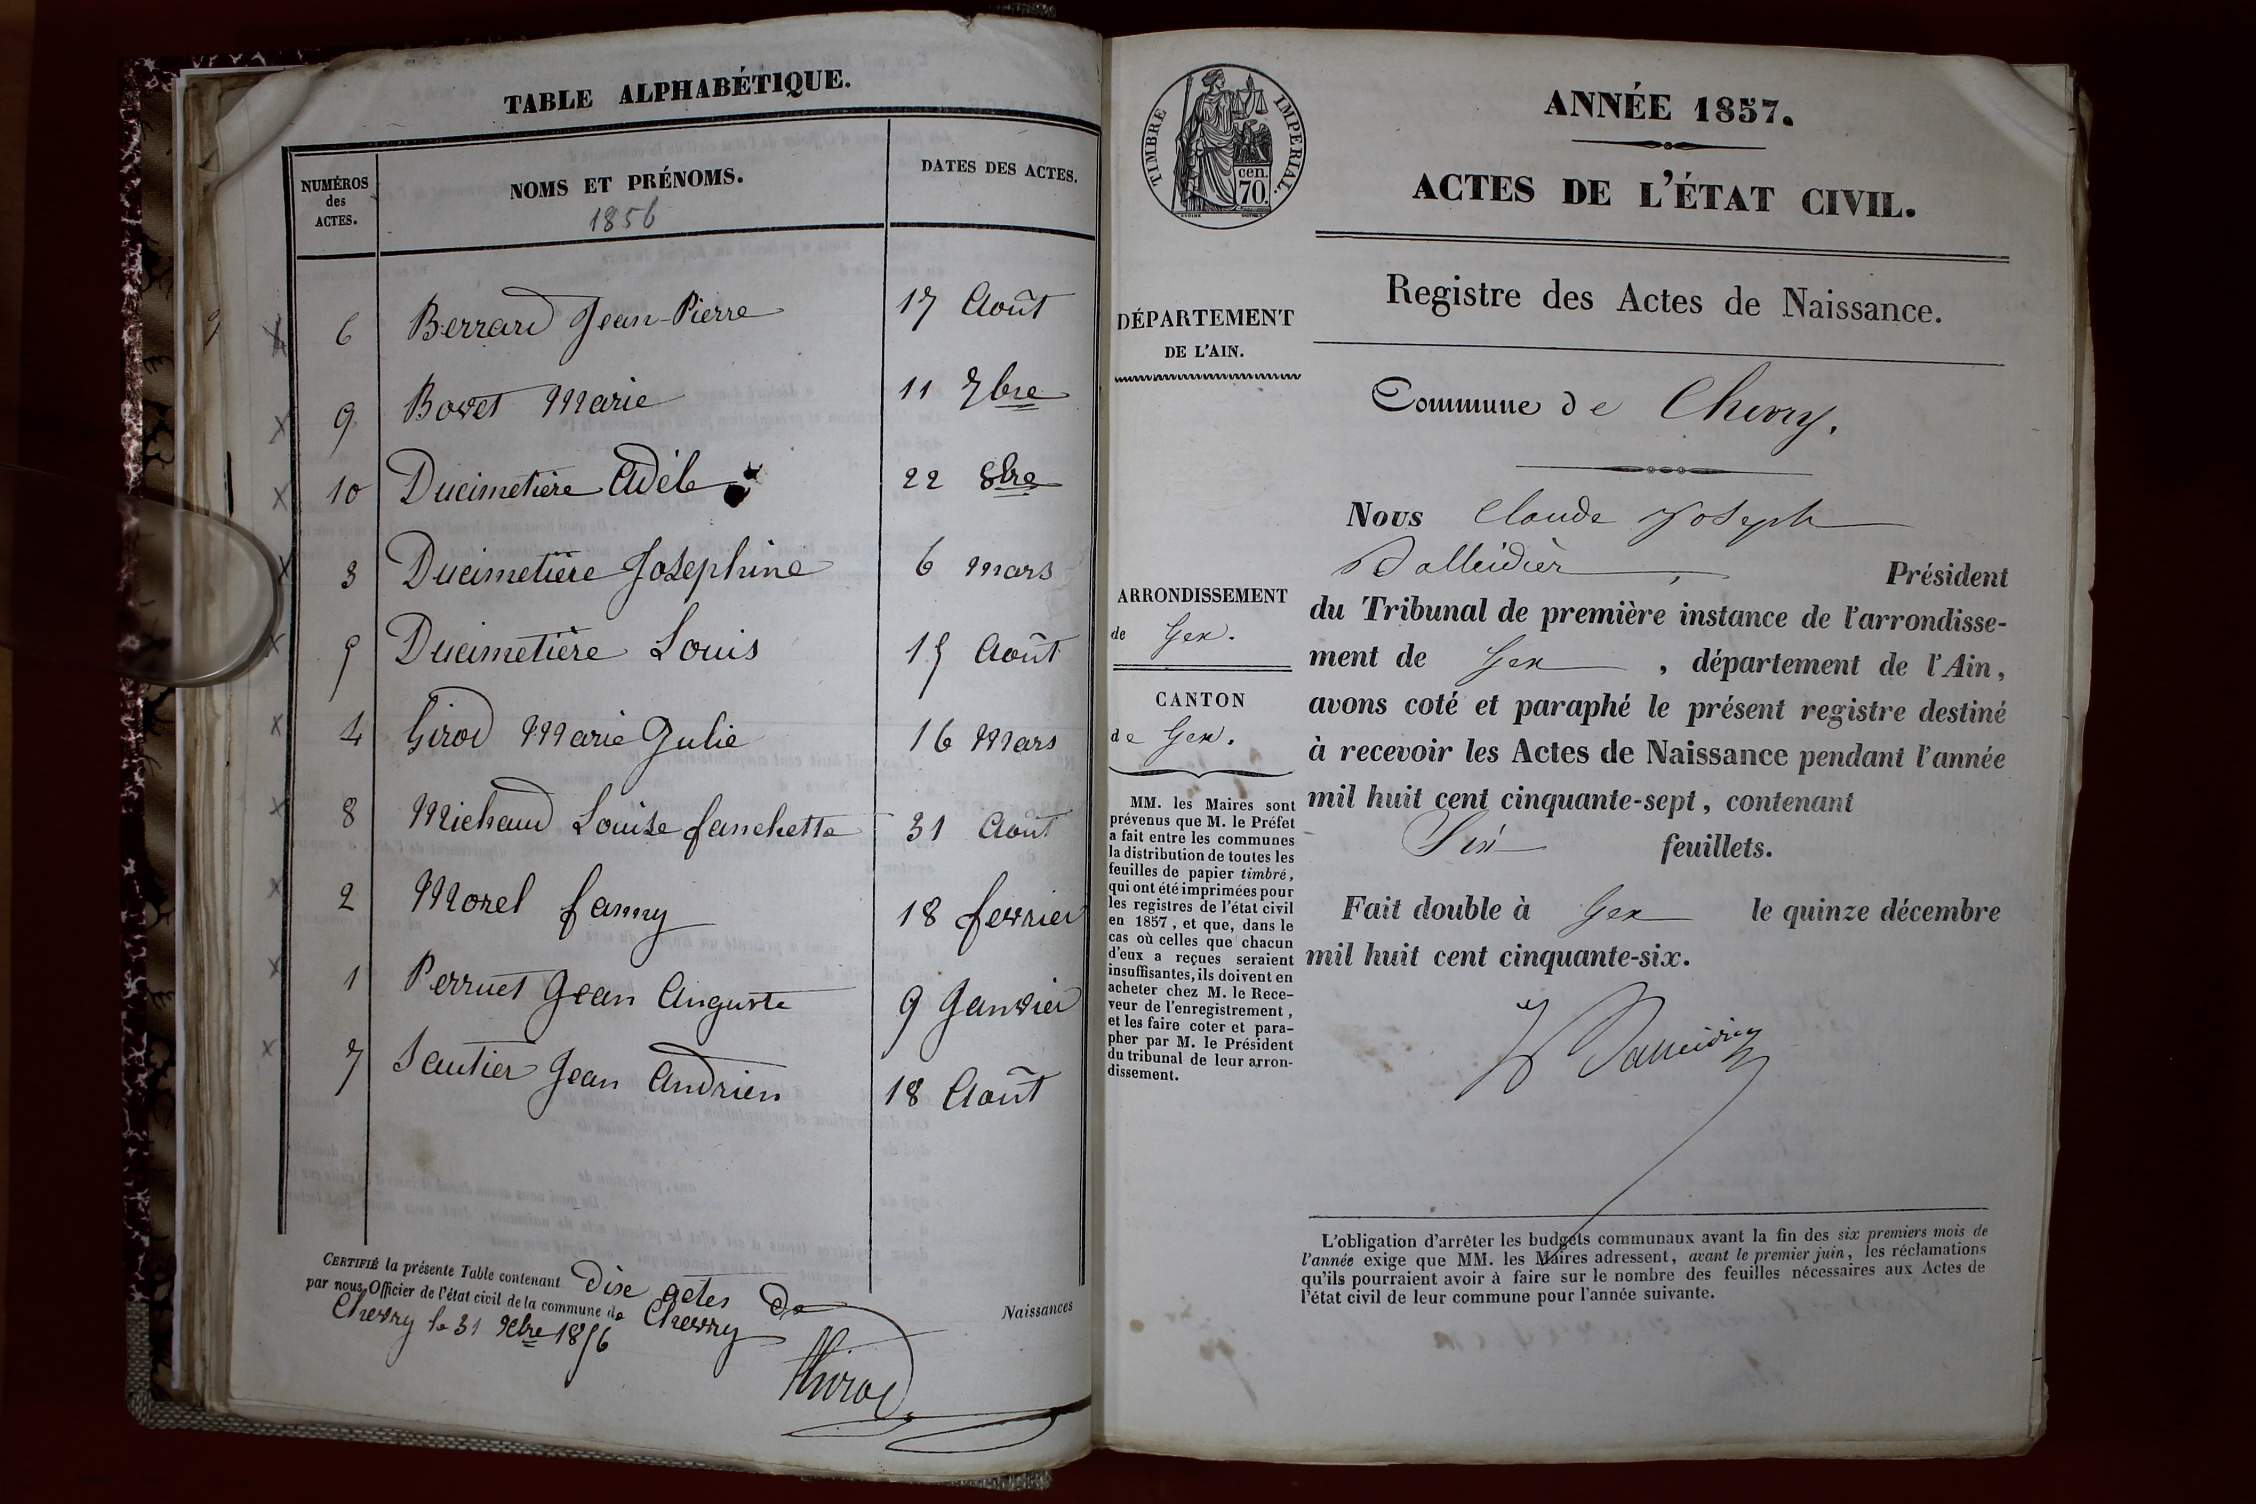 TABLE ALPHABÉTIQUE.
NUMÉROS des ACTES.
NOMS ET PRÉNOMS.
DATES DES ACTES.
1856
6 Berrard Jean-Pierre 17 Août
9 Bovet Marie 11 7bre
10 Ducimetière Adèle 22 8bre
3 Ducimetière Josephine 6 mars
5 Ducimetière Louis 15 Août
4 Girod Marie Julie 16 Mars
8 Michaud Louise fanchette 31 Août
2 Morel fanny 18 fevrier
1 Perruet Jean Auguste 9 Janvier
7 Sautier Jean Andrien 18 Août
CERTIFIÉ la présente Table contenant Dix actes de Naissances
par nous, Officier de l'état civil de la commune de Chevry
Chevry le 31 Xbre 1856
Girod
TIMBRE IMPERIAL.
cen. 70.
ANNÉE 1857.
ACTES DE L'ÉTAT CIVIL.
Registre des Actes de Naissance.
DÉPARTEMENT
DE L'AIN.
Commune de Chevry.
ARRONDISSEMENT
de Gex.
CANTON
de Gex.
MM. les Maires sont
prévenus que M. le Préfet
a fait entre les communes
la distribution de toutes les
feuilles de papier timbré,
qui ont été imprimées pour
les registres de l'état civil
en 1857, et que, dans le
cas où celles que chacun
d'eux a reçues seraient
insuffisantes, ils doivent en
acheter chez M. le Rece-
veur de l'enregistrement,
et les faire coter et para-
pher par M. le Président
du tribunal de leur arron-
dissement.
Nous Claude Joseph
Balleidier, Président
du Tribunal de première instance de l'arrondisse-
ment de Gex, département de l'Ain,
avons coté et paraphé le présent registre destiné
à recevoir les Actes de Naissance pendant l'année
mil huit cent cinquante-sept, contenant
Six feuillets.
Fait double à Gex le quinze décembre
mil huit cent cinquante-six.
Balleidier
L'obligation d'arrêter les budgets communaux avant la fin des six premiers mois de
l'année exige que MM. les Maires adressent, avant le premier juin, les réclamations
qu'ils pourraient avoir à faire sur le nombre des feuilles nécessaires aux Actes de
l'état civil de leur commune pour l'année suivante.